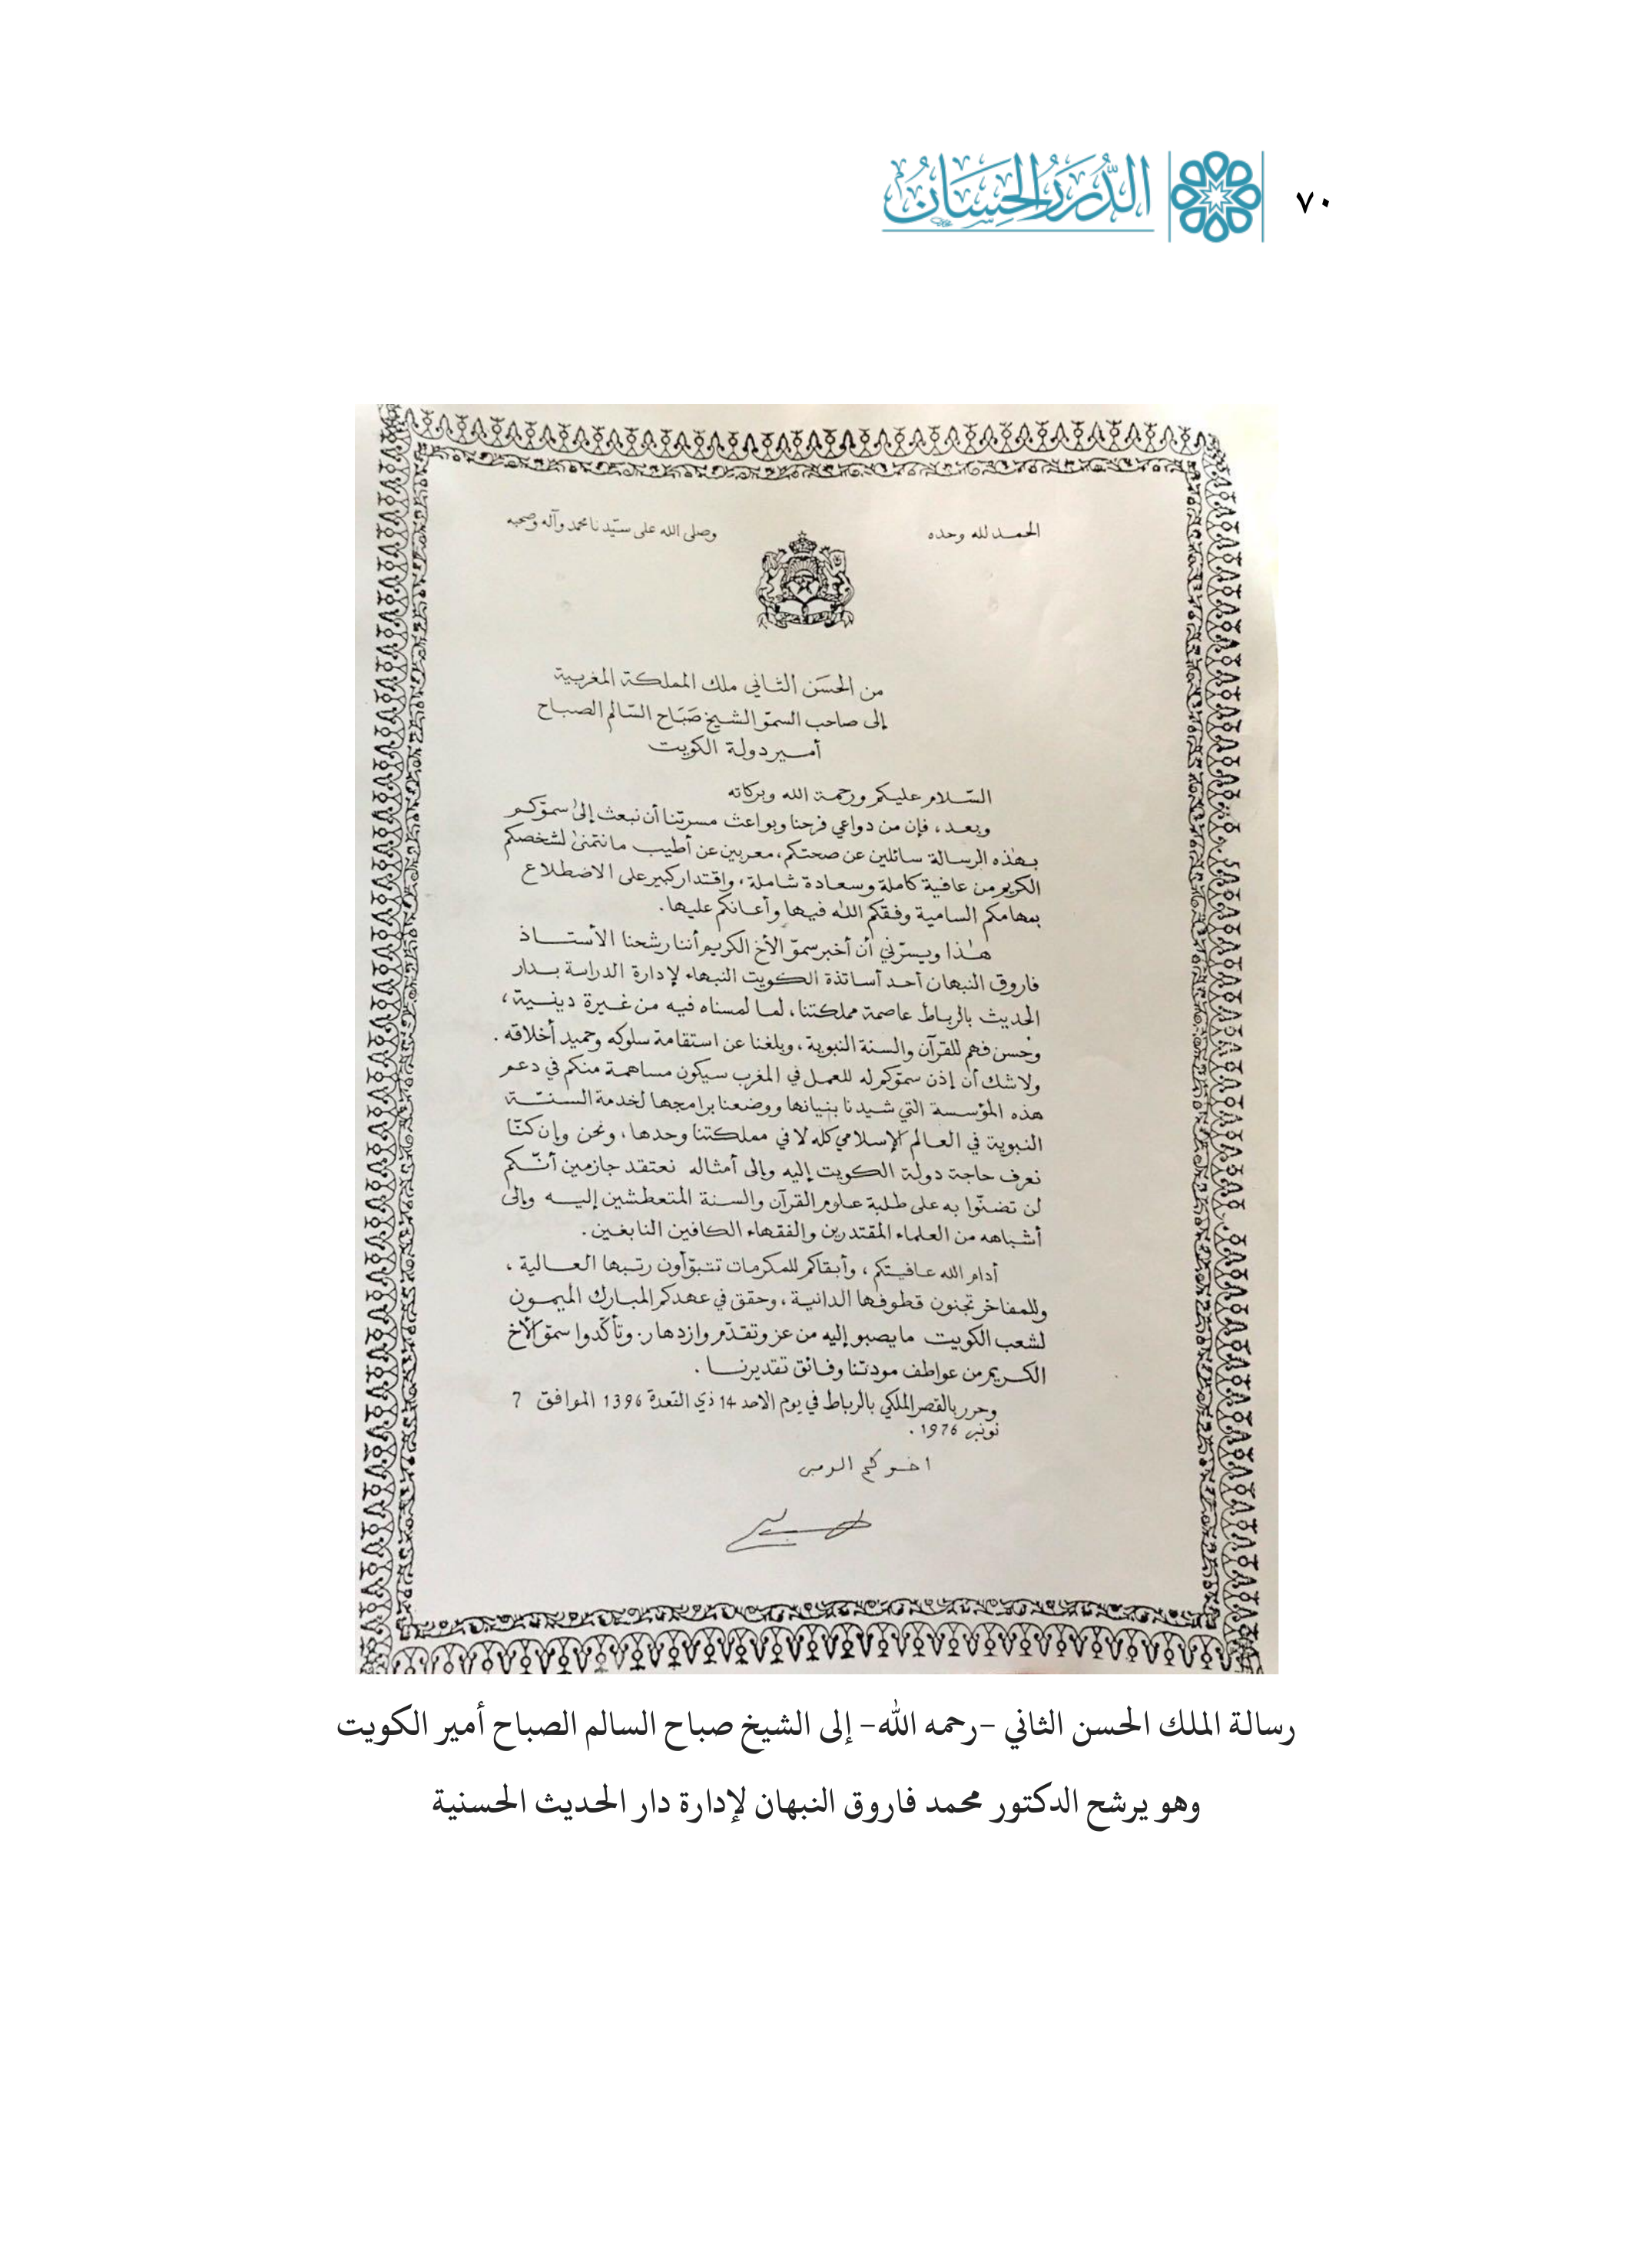 ٧٠
الدُّرَرُ الحِسَان
الحمد لله وحده
وصلى الله على سيّدنا محمد وآله وصحبه
من الحسَن الثاني ملك المملكة المغربية
إلى صاحب السموّ الشيخ صَبَاح السّالم الصباح
أمير دولة الكويت
السّلام عليكم ورحمة الله وبركاته
وبعد، فإن من دواعي فرحنا وبواعث مسرتنا أن نبعث إلى سموّكم
بهذه الرسالة سائلين عن صحتكم، معربين عن أطيب ما نتمنى لشخصكم
الكريم من عافية كاملة وسعادة شاملة، واقتدار كبير على الاضطلاع
بمهامكم السامية وفقكم الله فيها وأعانكم عليها.
هذا ويسرّني أن أخبر سموّ الأخ الكريم أننا رشحنا الأستاذ
فاروق النبهان أحد أساتذة الكويت النبهاء لإدارة الدراسة بدار
الحديث بالرباط عاصمة مملكتنا، لما لمسناه فيه من غيرة دينية،
وحسن فهم للقرآن والسنة النبوية، وبلغنا عن استقامة سلوكه وحميد أخلاقه.
ولا شك أن إذن سموّكم له للعمل في المغرب سيكون مساهمة منكم في دعم
هذه المؤسسة التي شيدنا بنيانها ووضعنا برامجها لخدمة السنّة
النبوية في العالم الإسلامي كله لا في مملكتنا وحدها، ونحن وإن كنّا
نعرف حاجة دولة الكويت إليه وإلى أمثاله نعتقد جازمين أنّكم
لن تضنّوا به على طلبة علوم القرآن والسنة المتعطشين إليه وإلى
أشباهه من العلماء المقتدرين والفقهاء الكافين النابغين.
أدام الله عافيتكم، وأبقاكم للمكرمات تتبوّأون رتبها العالية،
وللمفاخر تجنون قطوفها الدانية، وحقق في عهدكم المبارك الميمون
لشعب الكويت ما يصبو إليه من عز وتقدّم وازدهار. وتأكّدوا سموّ الأخ
الكريم من عواطف مودتنا وفائق تقديرنا.
وحرر بالقصر الملكي بالرباط في يوم الاحد 14 ذي القعدة 1396 الموافق 7
نونبر 1976.
اخوكم
رسالة الملك الحسن الثاني -رحمه الله- إلى الشيخ صباح السالم الصباح أمير الكويت
وهو يرشح الدكتور محمد فاروق النبهان لإدارة دار الحديث الحسنية